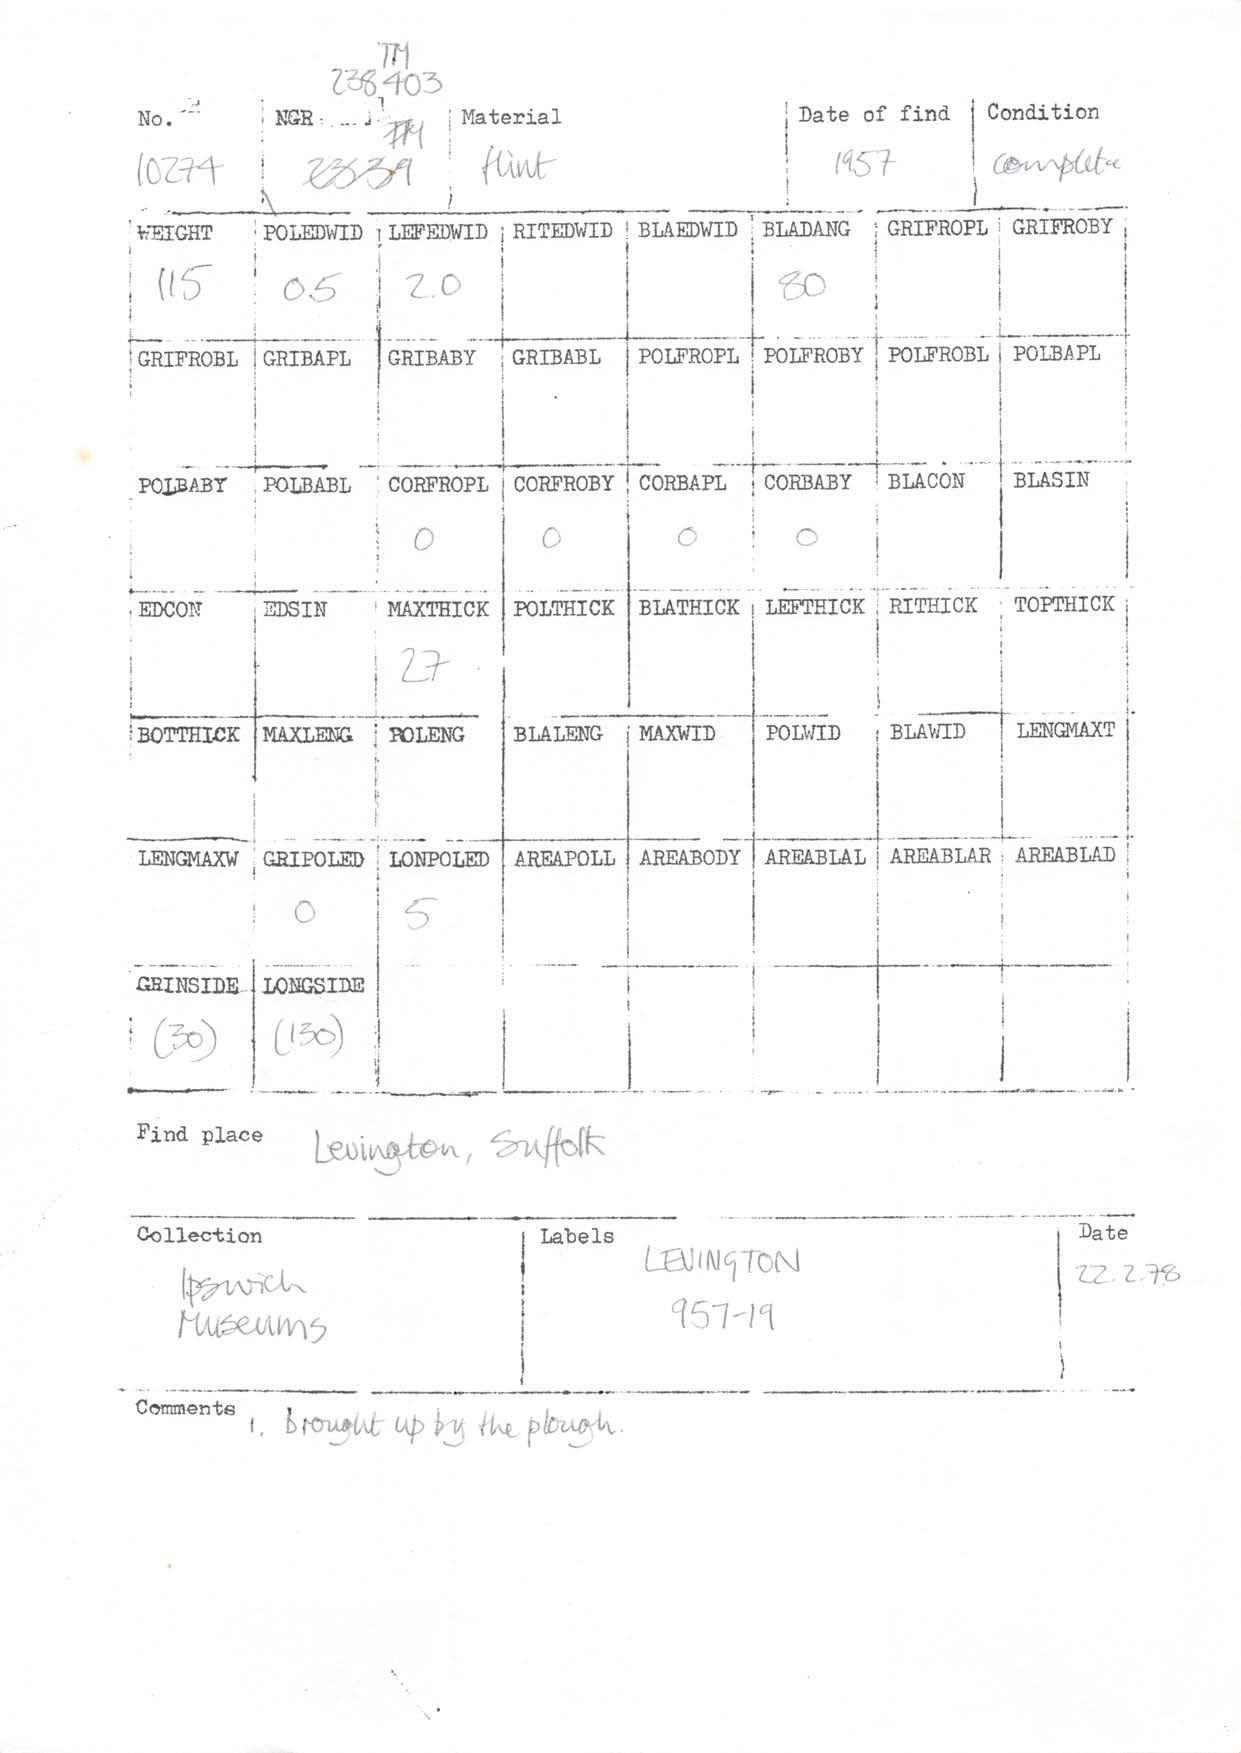 TM
238,403
No. NGR Material Date of find Condition
TM
10274 2339 flint 1957 complete
WEIGHT POLEDWID LEFEDWID RITEDWID BLAEDWID BLADANG GRIFROPL GRIFROBY
115 0.5 2.0 80
GRIFROBL GRIBAPL GRIBABY GRIBABL POLFROPL POLFROBY POLFROBL POLBAPL
POLBABY POLBABL CORFROPL CORFROBY CORBAPL CORBABY BLACON BLASIN
0 0 0 0
EDCON EDSIN MAXTHICK POLTHICK BLATHICK LEFTHICK RITHICK TOPTHICK
27
BOTTHICK MAXLENG POLENG BLALENG MAXWID POLWID BLAWID LENGMAXT
LENGMAXW GRIPOLED LONPOLED AREAPOLL AREABODY AREABLAL AREABLAR AREABLAD
0 5
GRINSIDE LONGSIDE
(30) (130)
Find place Levington, Suffolk
Collection Labels Date
LEVINGTON
Ipswich 22.2.78
Museums 957-19
Comments 1. brought up by the plough.